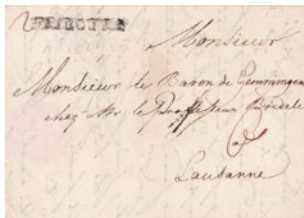 FRIBOURG
Monsieur
Monsieur le Baron de Gemmingen
chez Mr. le Professeur
à
Lausanne